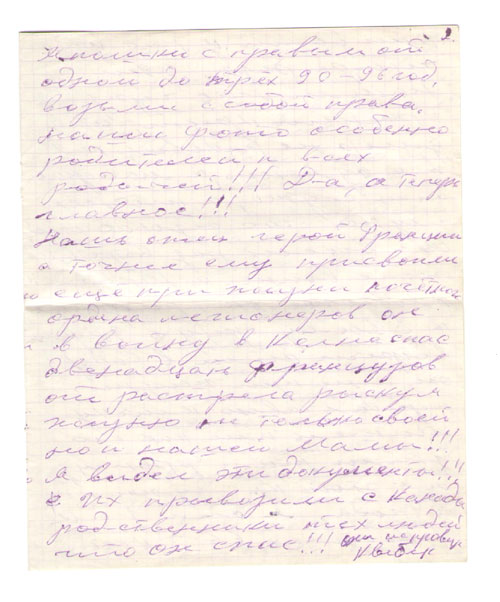 с правым от
одной до трёх 90-96 год,
возьми с собой права,
фото особенно
родителей и всех
родичей!!! Д-а, а теперь
главное!!!
Нашь отец герой Франции
а точнее ему присвоили
ещё при жизни
ордена легионеров он
в войну в спас
двенадцать французов
от растрела рискуя
жизнью не только своей
но и нашей Мамы!!!
Я видел эти документы!!!
Их привозили с Канады
родственники тех людей
что он спас!!! они